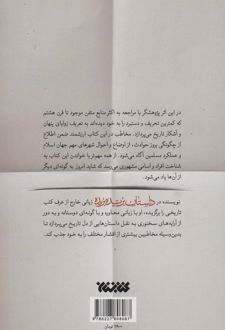 در این اثر پژوهشگر با مراجعه به اکثر منابع متقن موجود تا قرن هشتم
که کمترین تحریف و دستبرد را به خود دیده‌اند به تعریف زوایای پنهان
و آشکار تاریخ می‌پردازد. مخاطب در این کتاب ارزشمند ضمن اطلاع
از چگونگی بروز حوادث، از اوضاع و احوال شهرهای مهم جهان اسلام
و عملکرد مسلمین آگاه می‌شود. از همه مهم‌تر با خواندن این کتاب به
شناخت افراد و اسامی مشهوری می‌رسد که شاید امروز به گونه‌ای دیگر
از آن‌ها یاد می‌شود.
نویسنده در داستان زبانی خارج از عرف کتب
تاریخی را برگزیده، او با زبانی محاوره و با گونه‌ای دوستانه و به دور
از آرایه‌های سخنوری به نقل داستان‌هایی از دل تاریخ می‌پردازد تا
بدین‌وسیله مخاطبین بیشتری از اقشار مختلف را به خود جذب کند.
تومان